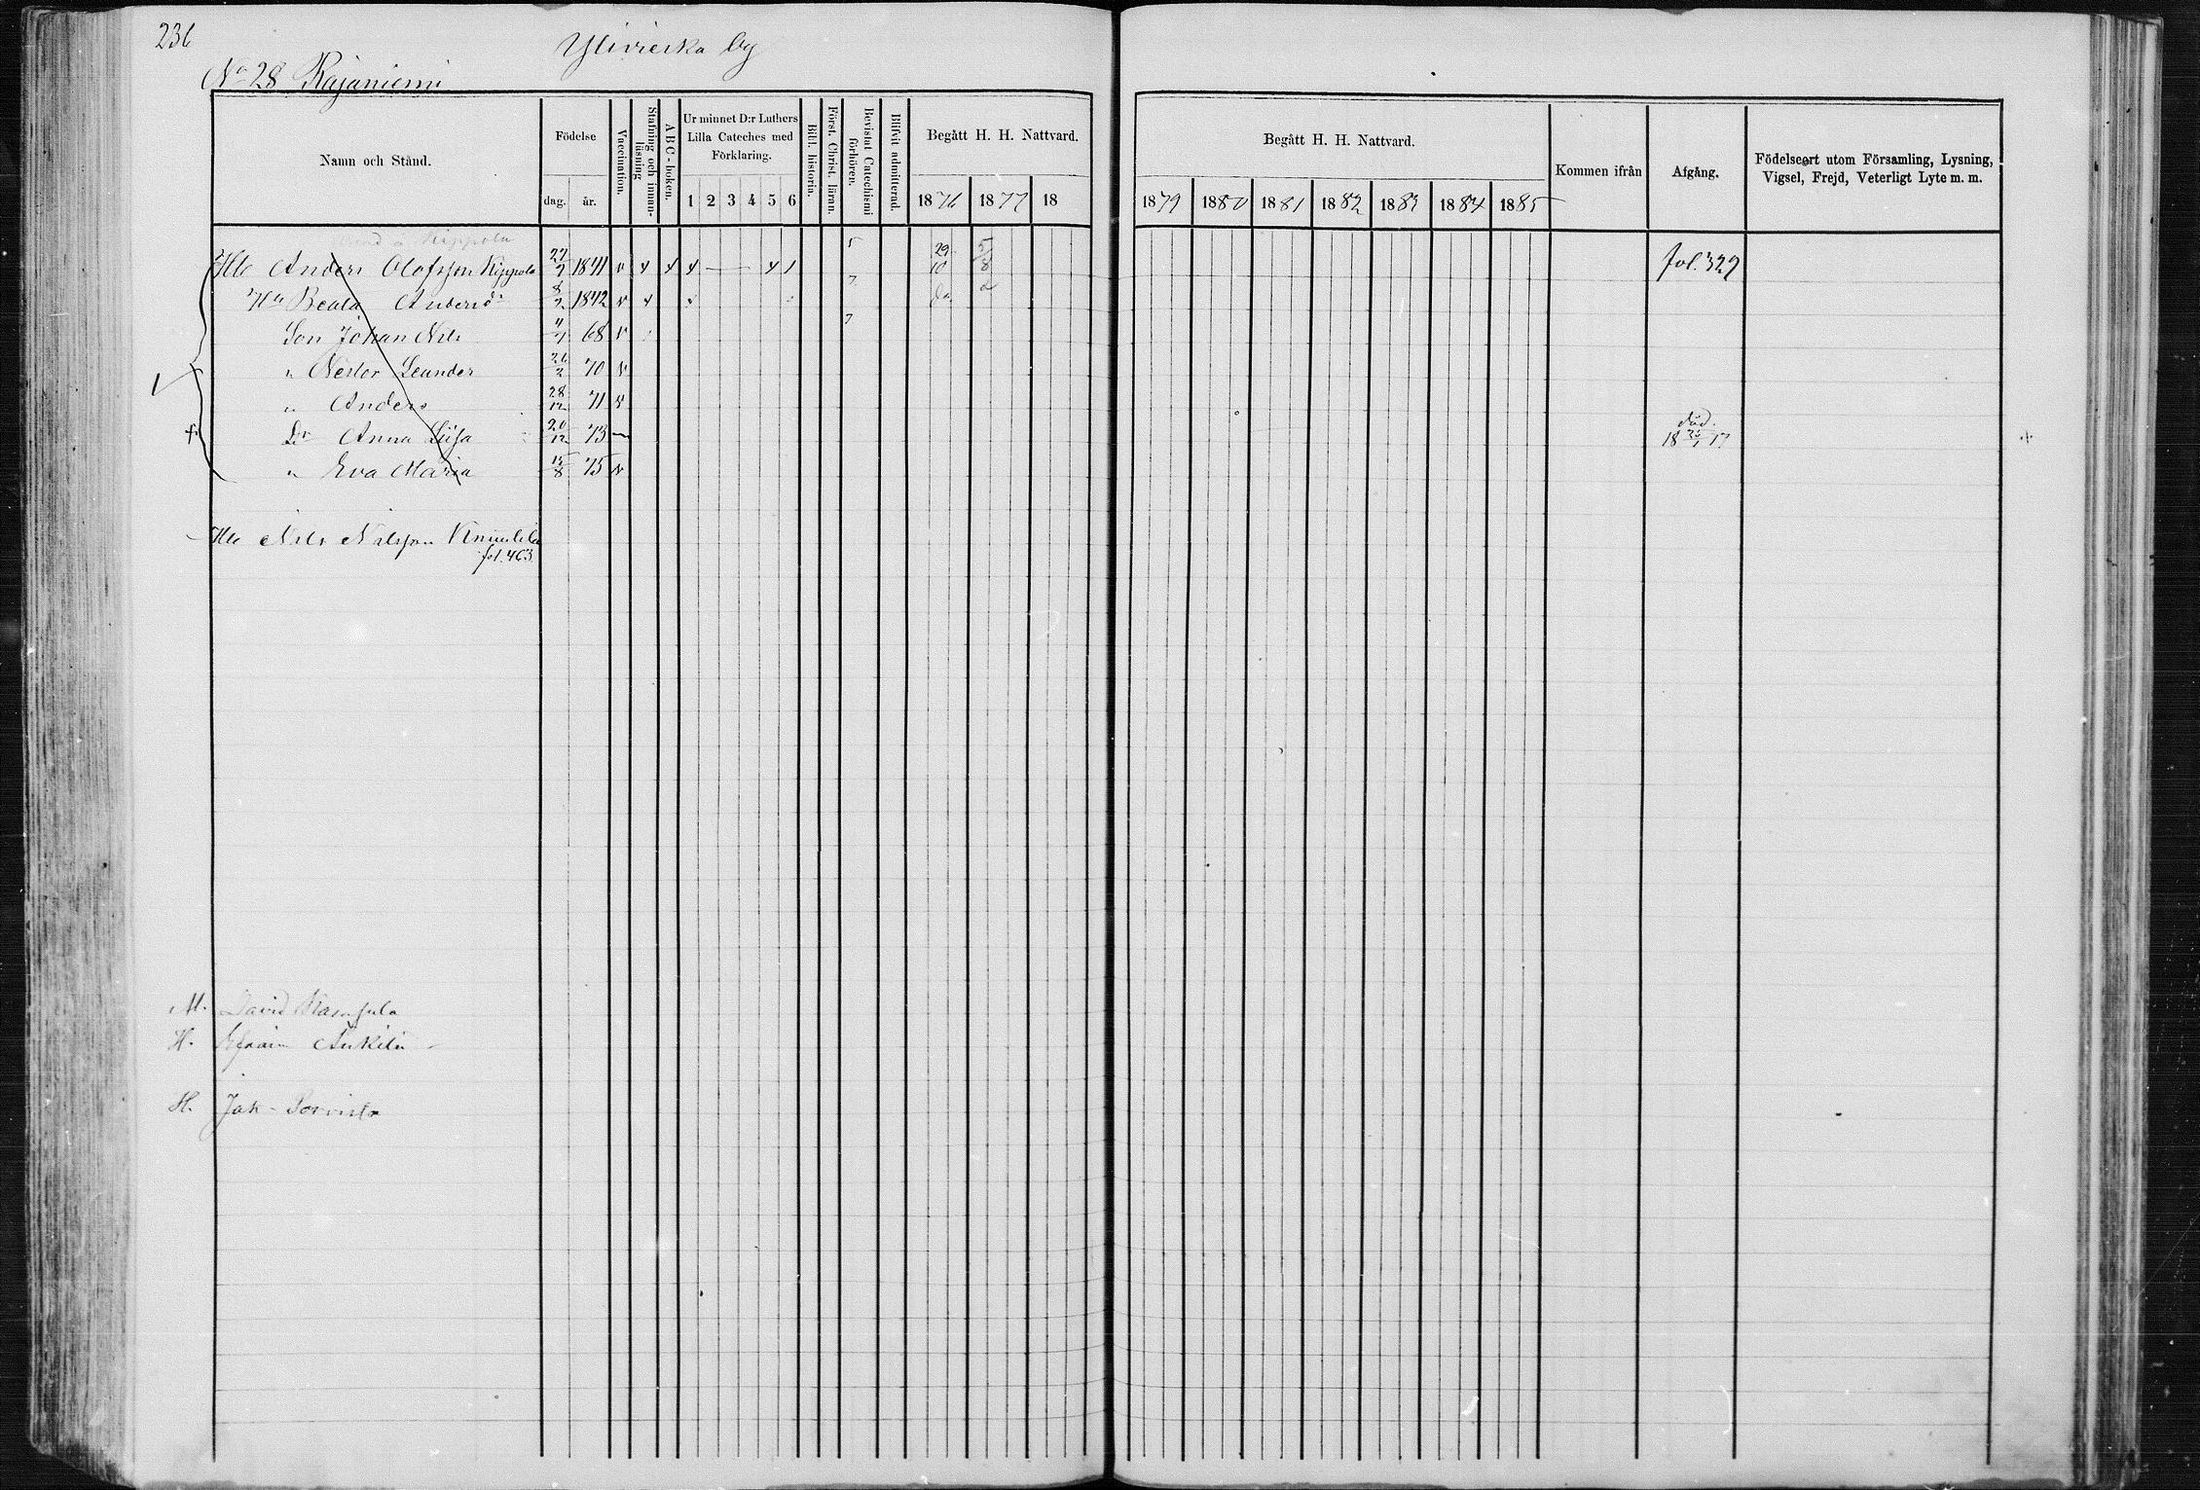 236
Ylivieska by
No 28 Rajaniemi
Namn och Stånd. Födelse dag. år. Vaccination. Stafning och innanläsning ABC-boken. Ur minnet D:r Luthers Lilla Cateches med Förklaring. 1 2 3 4 5 6 Bibl. historia. Först. Christ. läran. Bevistat Catechismi förhören. Blifvit admitterad. Begått H. H. Nattvard. 1876 1877 18
Begått H. H. Nattvard. 1879 1880 1881 1882 1883 1884 1885 Kommen ifrån Afgång. Födelseort utom Församling, Lysning, Vigsel, Frejd, Veterligt Lyte m. m.
Kippola
Anders Olofsson Kippola 27/7 1841 v 5 29/10 5/8 fol. 329
Hu Beata Andersdr 8/2 1842 v 7 do
Son Johan Nils 4/1 68 v 7
" Nestor Leander 26/2 70 v
" Anders 28/12 71 v
Dr Anna Lisa 20/12 73 död.
" Eva Maria 15/8 75 v
Nils Nilsson
fol. 463
M. David
H. Efraim
H. Jak